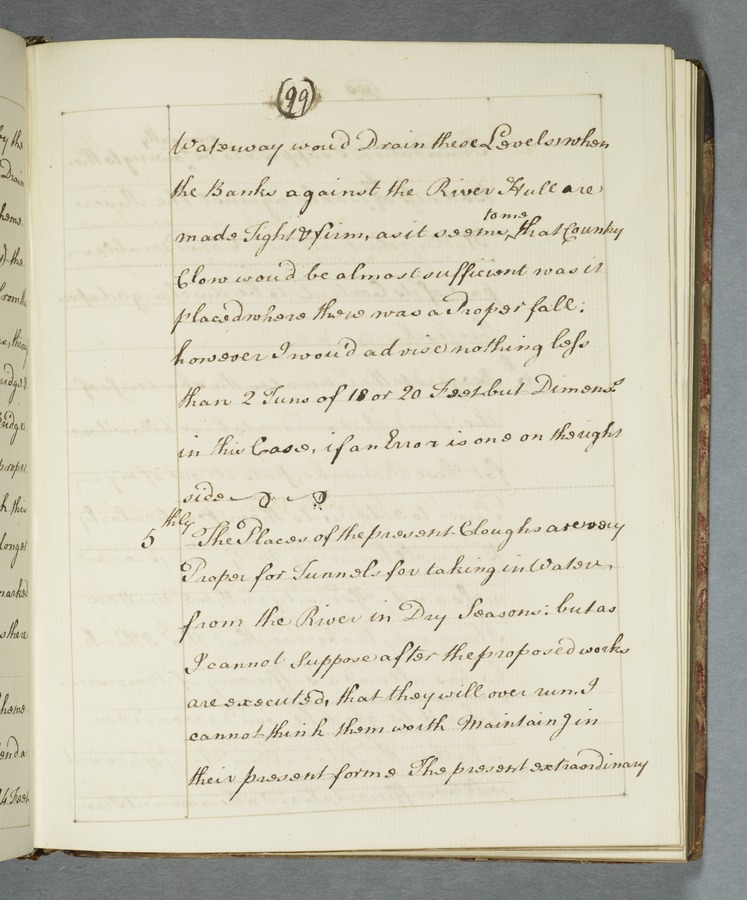 (99)
Waterway wou'd Drain these Levels when
the Banks against the River Hull are
made Tight & firm, as it seems to me, that County
Clow wou'd be almost sufficient was it
placed where there was a Proper fall;
however I wou'd advise nothing less
than 2 Tuns of 18 or 20 Feet but Dimens.s
in this Case, if an Error is one on the right
side
5thly The Places of the present Cloughs are very
Proper for Tunnels for taking in Water,
from the River in Dry Seasons: but as
I cannot Suppose after the proposed works
are executed, that they will over run. I
cannot think them worth Maintaing in
their present forme The present extraordinary